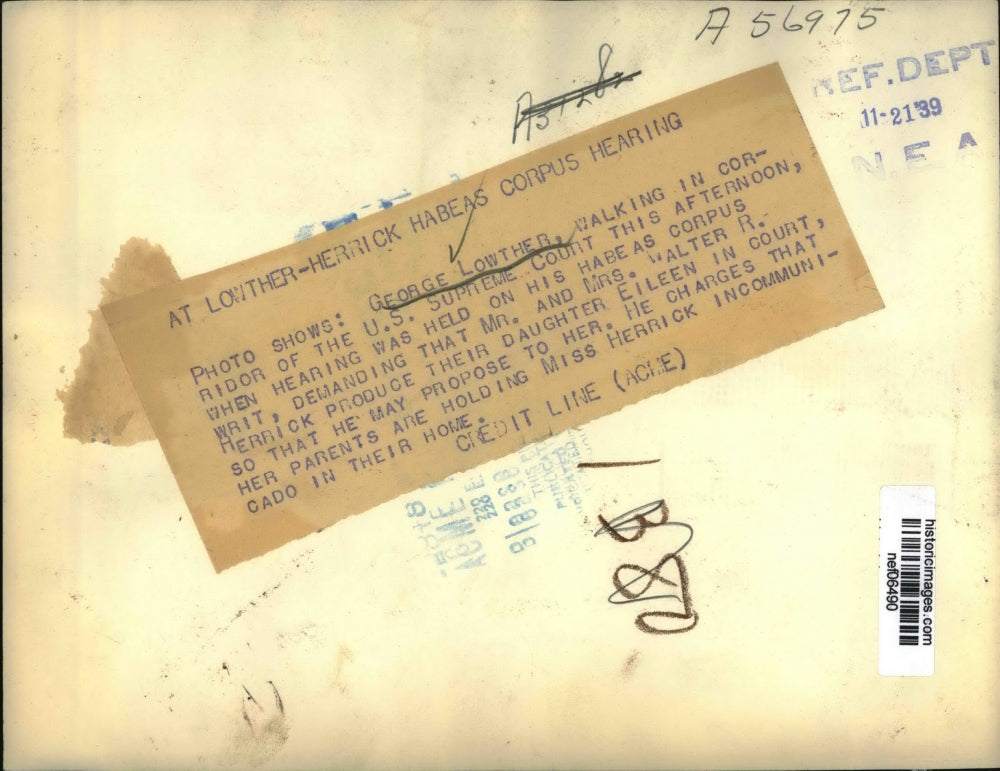 A 56975
REF. DEPT
11-21'39
N.E.A
AT LOWTHER-HERRICK HABEAS CORPUS HEARING
PHOTO SHOWS: GEORGE LOWTHER, WALKING IN COR-
RIDOR OF THE U.S. SUPREME COURT THIS AFTERNOON,
WHEN HEARING WAS HELD ON HIS HABEAS CORPUS
WRIT, DEMANDING THAT MR. AND MRS. WALTER R.
HERRICK PRODUCE THEIR DAUGHTER EILEEN IN COURT,
SO THAT HE MAY PROPOSE TO HER. HE CHARGES THAT
HER PARENTS ARE HOLDING MISS HERRICK INCOMMUNI-
CADO IN THEIR HOME.
CREDIT LINE (ACME)
ACME
historicimages.com
nef06490